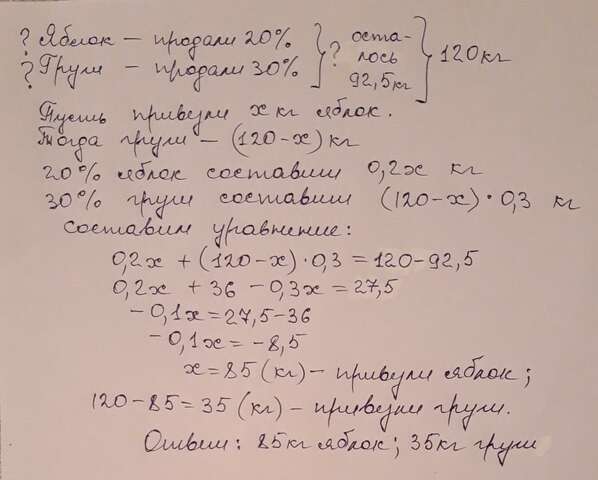 ? Яблок — продали 20% } ? оста- } 120 кг
? Груш — продали 30% лось
92,5 кг
Пусть привезли x кг яблок.
Тогда груш — (120-x) кг
20% яблок составит 0,2x кг
30% груш составит (120-x)·0,3 кг
Составим уравнение:
0,2x + (120-x)·0,3 = 120-92,5
0,2x + 36 - 0,3x = 27,5
-0,1x = 27,5-36
-0,1x = -8,5
x = 85 (кг) — привезли яблок;
120-85=35 (кг) — привезли груш.
Ответ: 85кг яблок; 35кг груш